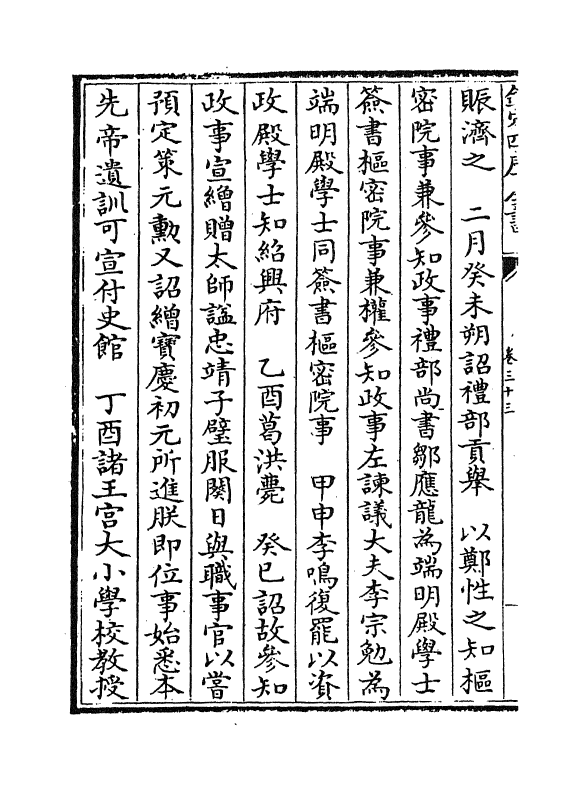 欽定四庫全書
卷三十三
賑濟之　二月癸未朔詔禮部貢舉　以鄭性之知樞
密院事兼參知政事禮部尚書鄒應龍為端明殿學士
簽書樞密院事兼權參知政事左諫議大夫李宗勉為
端明殿學士同簽書樞密院事　甲申李鳴復罷以資
政殿學士知紹興府　乙酉葛洪薨　癸巳詔故參知
政事宣繒贈太師諡忠靖子璧服闋日與職事官以嘗
預定策元勳又詔繒寶慶初元所進朕即位事始悉本
先帝遺訓可宣付史館　丁酉諸王宫大小學校教授